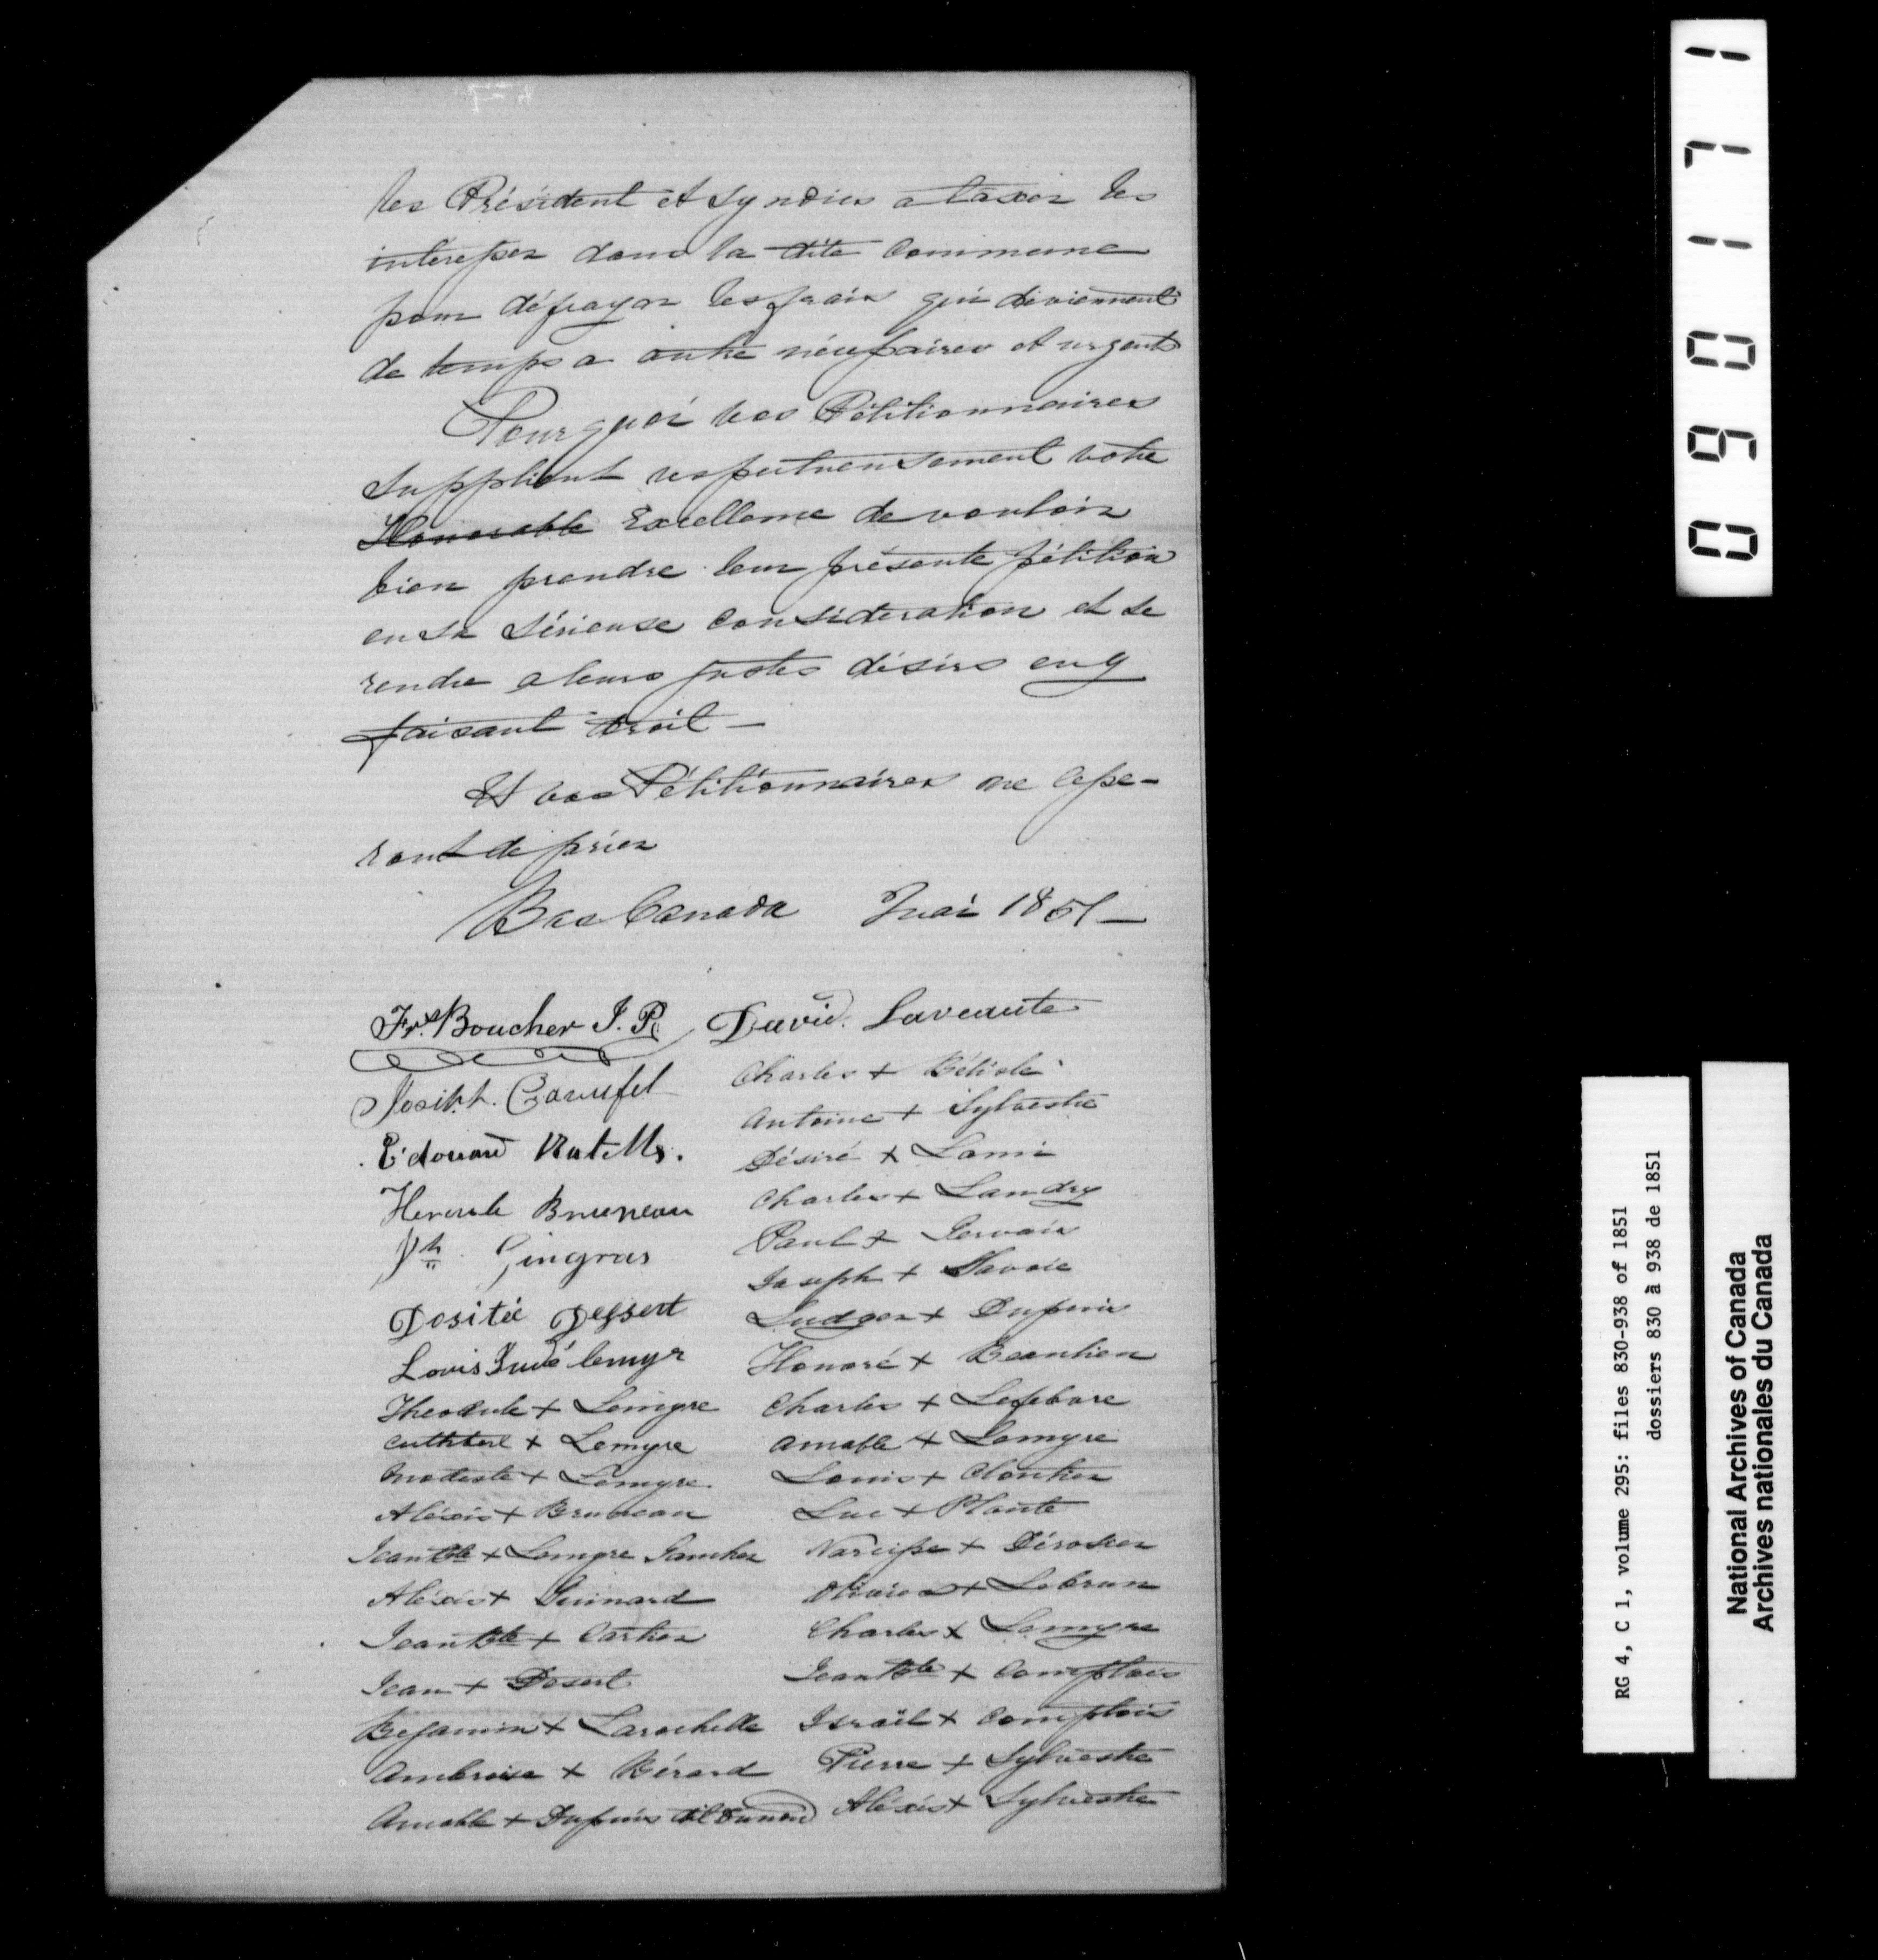 les Président et Syndics a taxer les
interessés dans la dite Commune
pour défrayer les frais qui deviennent
de temps a autre nécessaires et urgents
Pourquoi vos Pétitionnaires
Supplient respectueusement votre
Honorable Excellence de vouloir
bien prendre leur présente pétition
en sa Sérieuse Consideration et se
rendre a leurs justes désirs en y
faisant droit —
Et vos Pétitionnaires ne cesse-
ront de prier
Bas Canada Mai 1851 —
Frs Boucher J. P.
Joseph Carufel
Edouard
Hercule Bruneau
Jh Gingras
Dosité Dessert
Louis Judé lemyr
Theodule + Lemyre
Cuthbert + Lemyre
Modeste + Lemyre
Aléxis + Bruneau
Jean Bte + Lemyre Gaucher
Aléxis + Guinard
Jean Bte + Carkes
Jean + Desert
Bejamin + Larochelle
Ambroise + Bérard
Amable + Dupuis dit
David Laveaute
Charles + Bélisle
Antoine + Sylvestre
Désiré + Lami
Charles + Landry
Paul + Gervais
Joseph + Savoie
Ludger + Dupuis
Honoré + Beaulieu
Charles + Lefebvre
Amable + Lemyre
Louis + Cloutier
Luc + Plante
Narcisse + Dérosier
Olivier + Lebrun
Charles + Lemyre
Jean Bte + Comptois
Israël + Comptois
Pierre + Sylvestre
Aléxis + Sylvestre
090171
RG 4, C 1, volume 295: files 830-938 of 1851
dossiers 830 à 938 de 1851
National Archives of Canada
Archives nationales du Canada